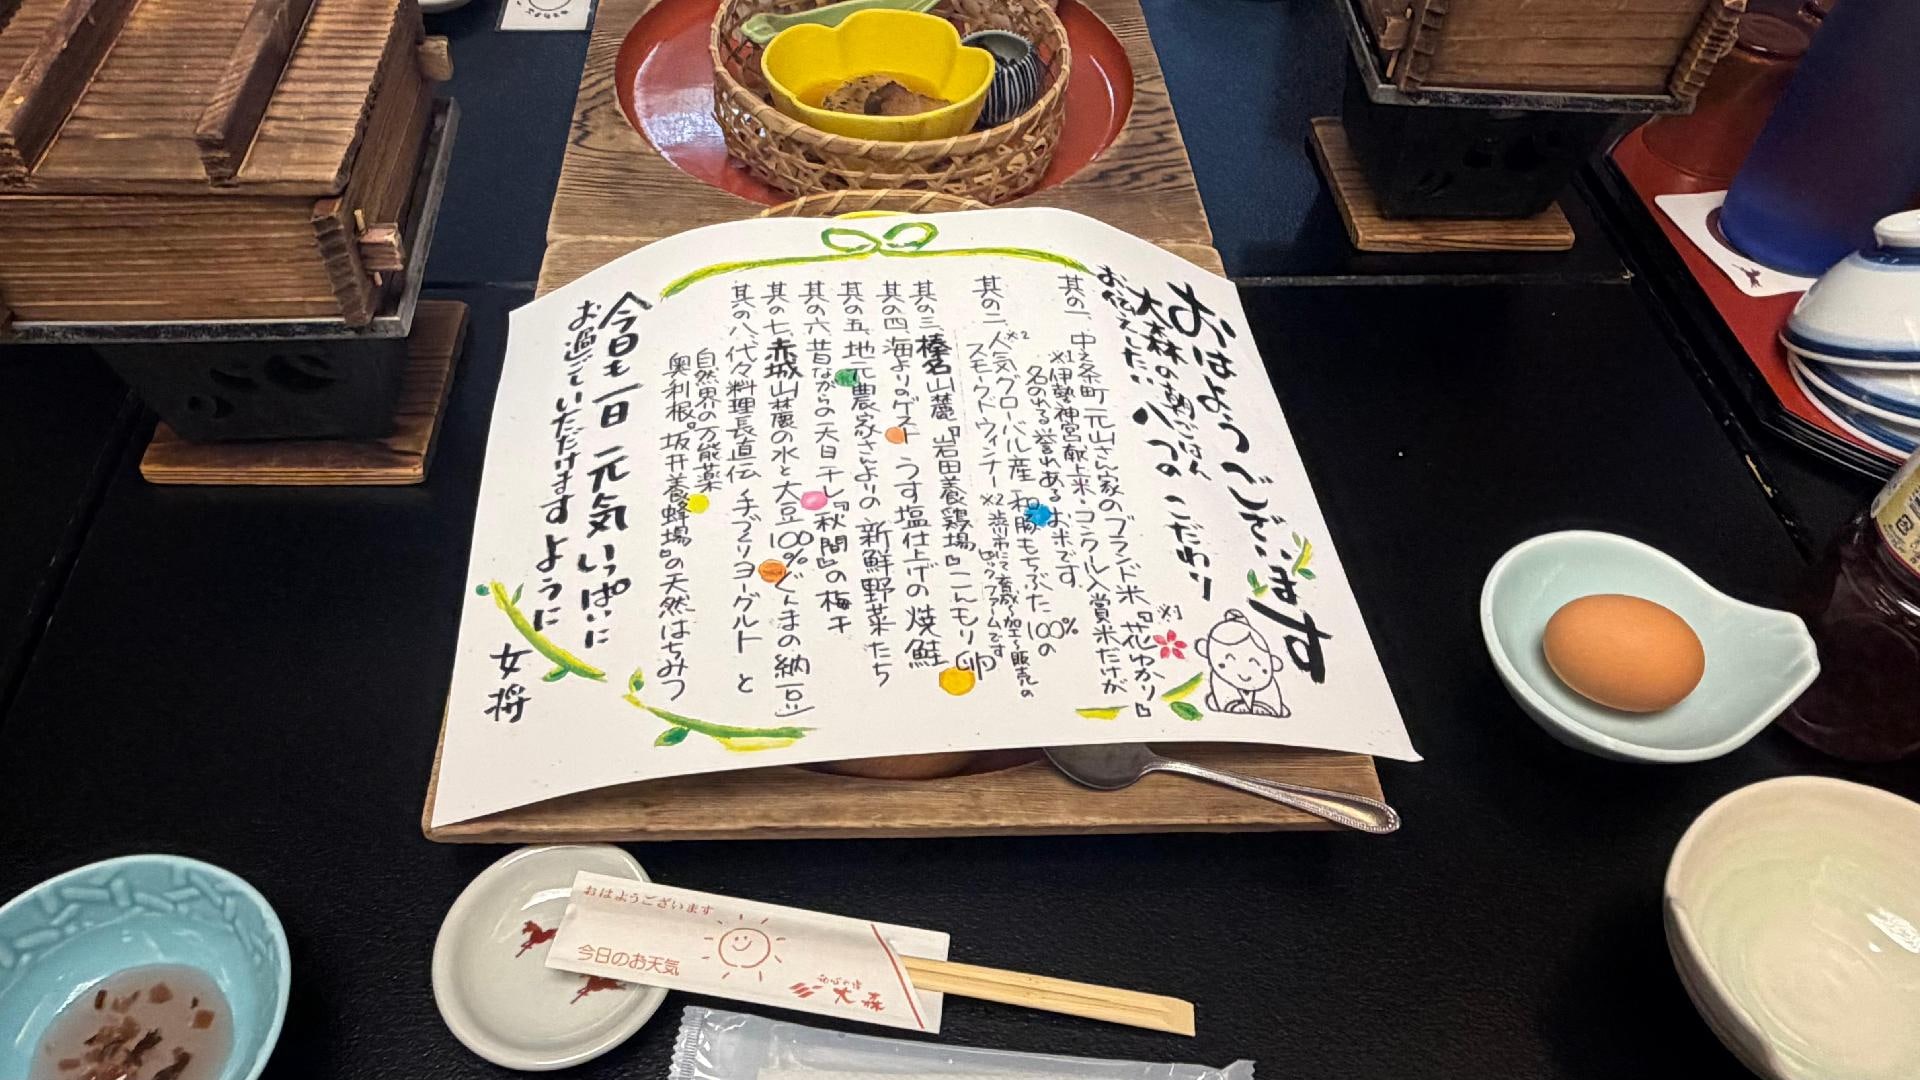 おはようございます
大森の朝ごはん
お伝えしたい八つのこだわり
其の一、中之条町 元山さん家のブランド米『花ゆかり』※1
※1伊勢神宮献上米・コンクール入賞米だけが
名のれる誉れあるお米です
其の二、人気グローバル産 和豚もちぶた100%の
※2
スモークドウィンナー ※2 渋川市にて育成〜加工〜販売の
ロックファームです
其の三、榛名山麓『岩田養鶏場』こんもり卵
其の四、海よりのゲスト うす塩仕上げの焼鮭
其の五、地元農家さんよりの 新鮮野菜たち
其の六、昔ながらの天日干し『秋間』の梅干
其の七、赤城山麓の水と大豆100%ぐんまの納豆
其の八、代々料理長直伝 手づくりヨーグルト と
自然界の万能薬
奥利根。坂井養蜂場』の天然はちみつ
今日も一日 元気いっぱいに
お過ごしいただけますように
女将
おはようございます
今日のお天気
大森